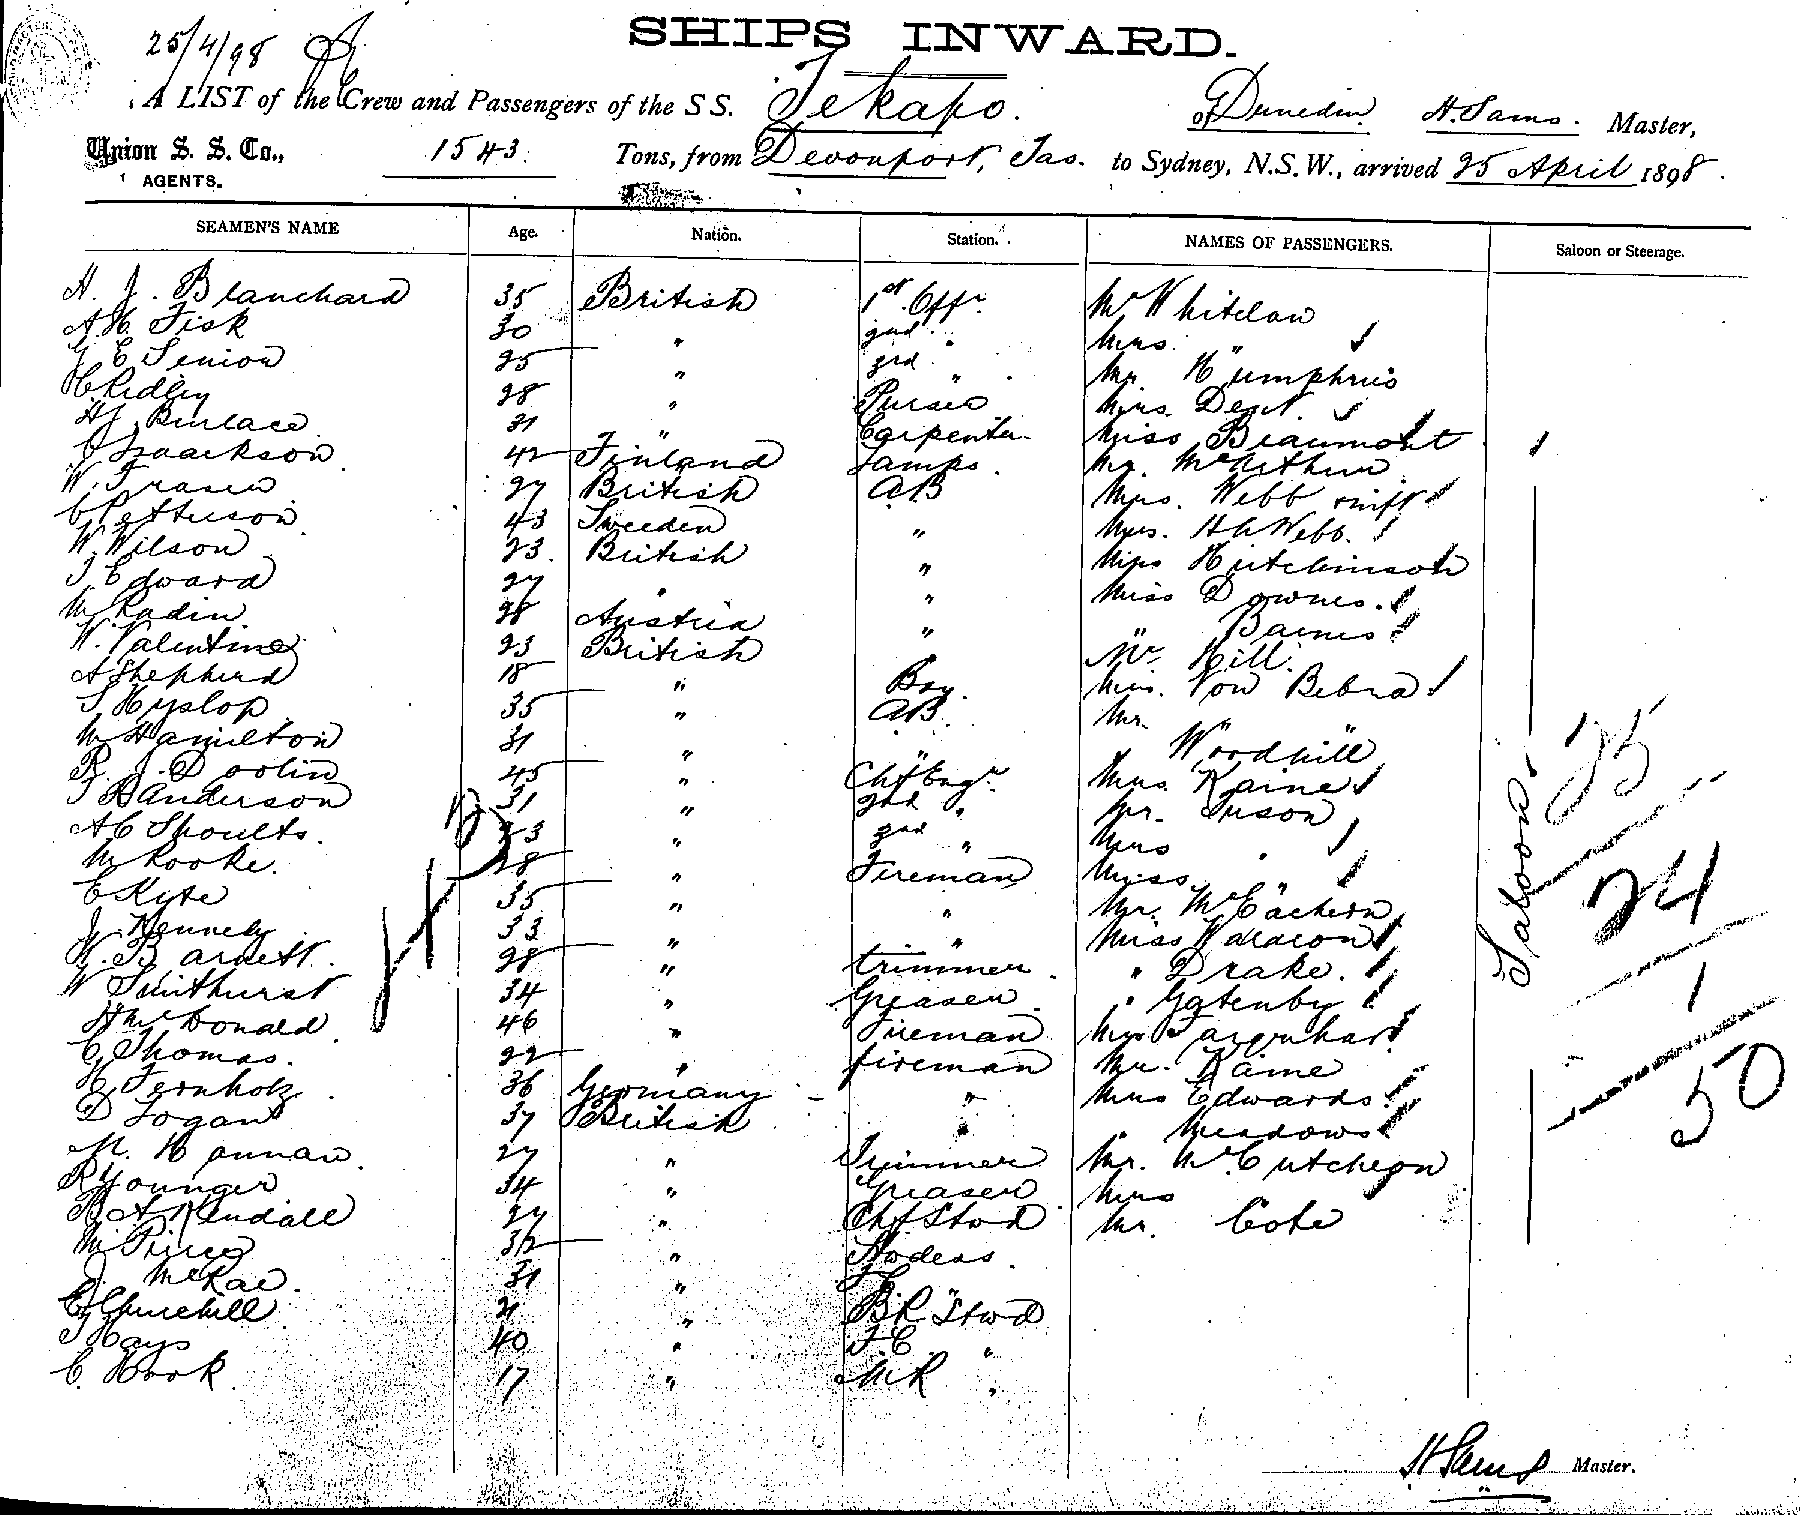 25/4/98
SHIPS INWARD.
A LIST of the Crew and Passengers of the S S. Tekapo. of Dunedin. H. Sams. Master,
Union S. S. Co., 1543. Tons, from Devonport, Tas. to Sydney, N.S.W., arrived 25 April 1898.
AGENTS.
SEAMEN'S NAME Age. Nation. Station. NAMES OF PASSENGERS. Saloon or Steerage.
H. J. Blanchard 35 British 1st Offr. Mr Whitelaw
A. H. Fisk 30 " 2nd " Mrs. "
E Senior 25 " 3rd " Mr. Humphris
Ridley 28 " Purser Mrs. Dent.
Binlace 31 " Carpenter Miss Beaumont
Isaackson 42 Finland Lamps. Mr. McArthur
W. Fraser 27 British AB Mrs. Webb
C Petterson 43 Sweeden " Mrs. Webb.
W Wilson 23. British " Miss Hutchinson
J Edward 27 " " Miss Downes.
M Radin. 28 Austria " " Barnes
W. Valentine 23 British "  Mr. Hill.
A Shepherd 18 " Boy. Von Bibra
J Hyslop 35 " AB. Mr. "
M Hamilton 31 " " Woodhill
R. J. Doolin 45 " Chf Engr. Mrs. Raine
J B Anderson 31 " 2nd " Mr. Tuson
A C Shoults. 23 " 3rd " Mrs "
M Rooke. 28 " Fireman Miss "
E Kyte 35 " " Mr. McEachern
J. Kennely 33 " " Miss
W. Barnett. 28 " trimmer. " Drake.
W Smithurst 34 " Greaser " Gatenby
H McDonald 46 " Fireman Farquhar
G Thomas. 22 " fireman Mr. Raine
Fernholz 36 Germany " Mrs Edwards
D Logan 37 British " " Meadows
M. Hannan. 27 " Trimmer Mr. McCutcheon
R Younger 34 " Greaser Mrs
Kendall 27 " Chf Stwd Mr. Cote
M Pring 32 " Stodess.
J McRae. 31 "
Churchill 21 " BR Stwd
J Hays 40 " F.C. "
C. Hook. 17 " MR "
Saloon
25
24
1
50
H Sams Master.